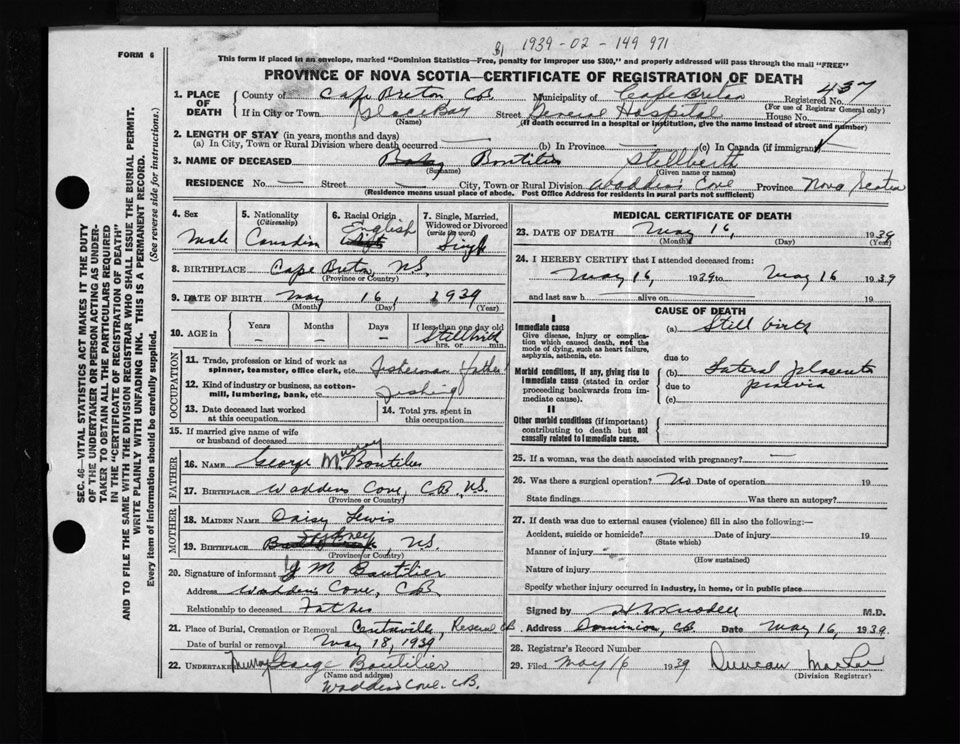 FORM 6
1939-02-149 971
This form if placed in an envelope, marked "Dominion Statistics—Free, penalty for improper use $300," and properly addressed will pass through the mail "FREE"
PROVINCE OF NOVA SCOTIA—CERTIFICATE OF REGISTRATION OF DEATH
SEC. 46—VITAL STATISTICS ACT MAKES IT THE DUTY
OF THE UNDERTAKER OR PERSON ACTING AS UNDER-
TAKER TO OBTAIN ALL THE PARTICULARS REQUIRED
IN THE "CERTIFICATE OF REGISTRATION OF DEATH"
AND TO FILE THE SAME WITH THE DIVISION REGISTRAR WHO SHALL ISSUE THE BURIAL PERMIT.
WRITE PLAINLY WITH UNFADING INK. THIS IS A PERMANENT RECORD.
Every item of information should be carefully supplied. (See reverse side for instructions.)
1. PLACE OF DEATH County of Cape Breton C.B. Municipality of Cape Breton Registered No. 437
(For use of Registrar General only)
If in City or Town Glace Bay Street General Hospital House No.
(If death occurred in a hospital or institution, give the name instead of street and number)
2. LENGTH OF STAY (in years, months and days)
(a) In City, Town or Rural Division where death occurred — (b) In Province — (c) In Canada (if immigrant)
3. NAME OF DECEASED Baby Boutilier Stillbirth
(Surname) (Given name or names)
RESIDENCE No. — Street — City, Town or Rural Division Waddens Cove Province Nova Scotia
(Residence means usual place of abode. Post Office Address for residents in rural parts not sufficient)
4. Sex Male
5. Nationality (Citizenship) Canadian
6. Racial Origin English
7. Single, Married, Widowed or Divorced (write by word) Single
8. BIRTHPLACE Cape Breton, N.S.
(Province or Country)
9. DATE OF BIRTH May 16, 1939
(Month) (Day) (Year)
10. AGE in Years — Months — Days — If less than one day old Stillbirth hrs. or min.
OCCUPATION
11. Trade, profession or kind of work as spinner, teamster, office clerk, etc. Fisherman father
12. Kind of industry or business, as cotton-mill, lumbering, bank, etc. Fishing
13. Date deceased last worked at this occupation
14. Total yrs. spent in this occupation
15. If married give name of wife or husband of deceased
FATHER
16. NAME George Murray Boutilier
17. BIRTHPLACE Waddens Cove, C.B., N.S.
(Province or Country)
MOTHER
18. MAIDEN NAME Daisy Lewis
19. BIRTHPLACE Sydney, N.S.
(Province or Country)
20. Signature of informant G M Boutilier
Address Waddens Cove, C.B.
Relationship to deceased Father
21. Place of Burial, Cremation or Removal Centreville, Reserve C.B.
Date of burial or removal May 18, 1939
22. UNDERTAKER Murray George Boutilier
(Name and address)
Waddens Cove, C.B.
MEDICAL CERTIFICATE OF DEATH
23. DATE OF DEATH May 16, 1939
(Month) (Day) (Year)
24. I HEREBY CERTIFY that I attended deceased from:
May 16, 1939 to May 16 1939
and last saw h alive on 19
CAUSE OF DEATH
I
Immediate cause
Give disease, injury or complication which caused death, not the mode of dying, such as heart failure, asphyxia, asthenia, etc.
(a) Still birth
due to
Morbid conditions, if any, giving rise to immediate cause (stated in order proceeding backwards from immediate cause).
(b) Lateral placenta
due to praevia
(c)
II
Other morbid conditions (if important) contributing to death but not causally related to immediate cause.
25. If a woman, was the death associated with pregnancy? —
26. Was there a surgical operation? No Date of operation 19
State findings Was there an autopsy?
27. If death was due to external causes (violence) fill in also the following:—
Accident, suicide or homicide? Date of injury 19
(State which)
Manner of injury
(How sustained)
Nature of injury
Specify whether injury occurred in industry, in home, or in public place
Signed by M.D.
Address Dominion, C.B. Date May 16, 1939
28. Registrar's Record Number
29. Filed May 16 1939 Duncan
(Division Registrar)